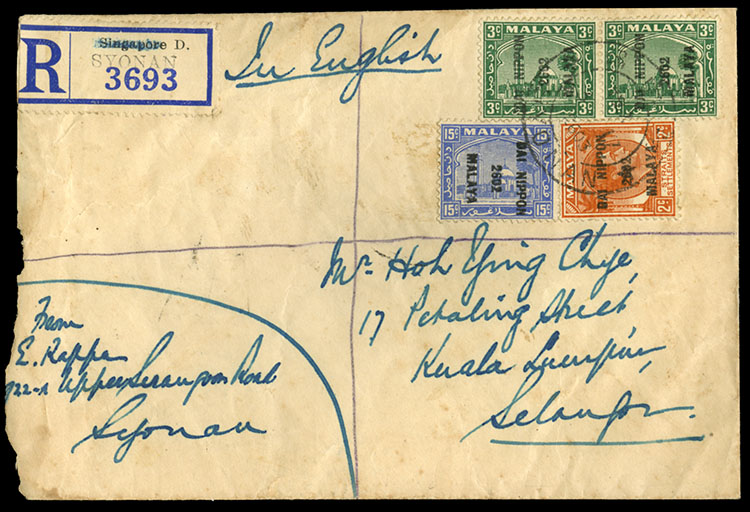 R
Singapore D.
SYONAN
3693
In English
3c MALAYA 3c
DAI NIPPON
2602
MALAYA
3c MALAYA 3c
DAI NIPPON
2602
MALAYA
15c MALAYA 15c
DAI NIPPON
2602
MALAYA
15c 15c
2c MALAYA 2c
STRAITS SETTLEMENTS
DAI NIPPON
2602
MALAYA
2c 2c
Mr. Hoh Ying Chye,
17 Petaling Street
Kuala Lumpur,
Selangor.
From
E. Rappa
722-A Upper Serangoon Road
Syonan